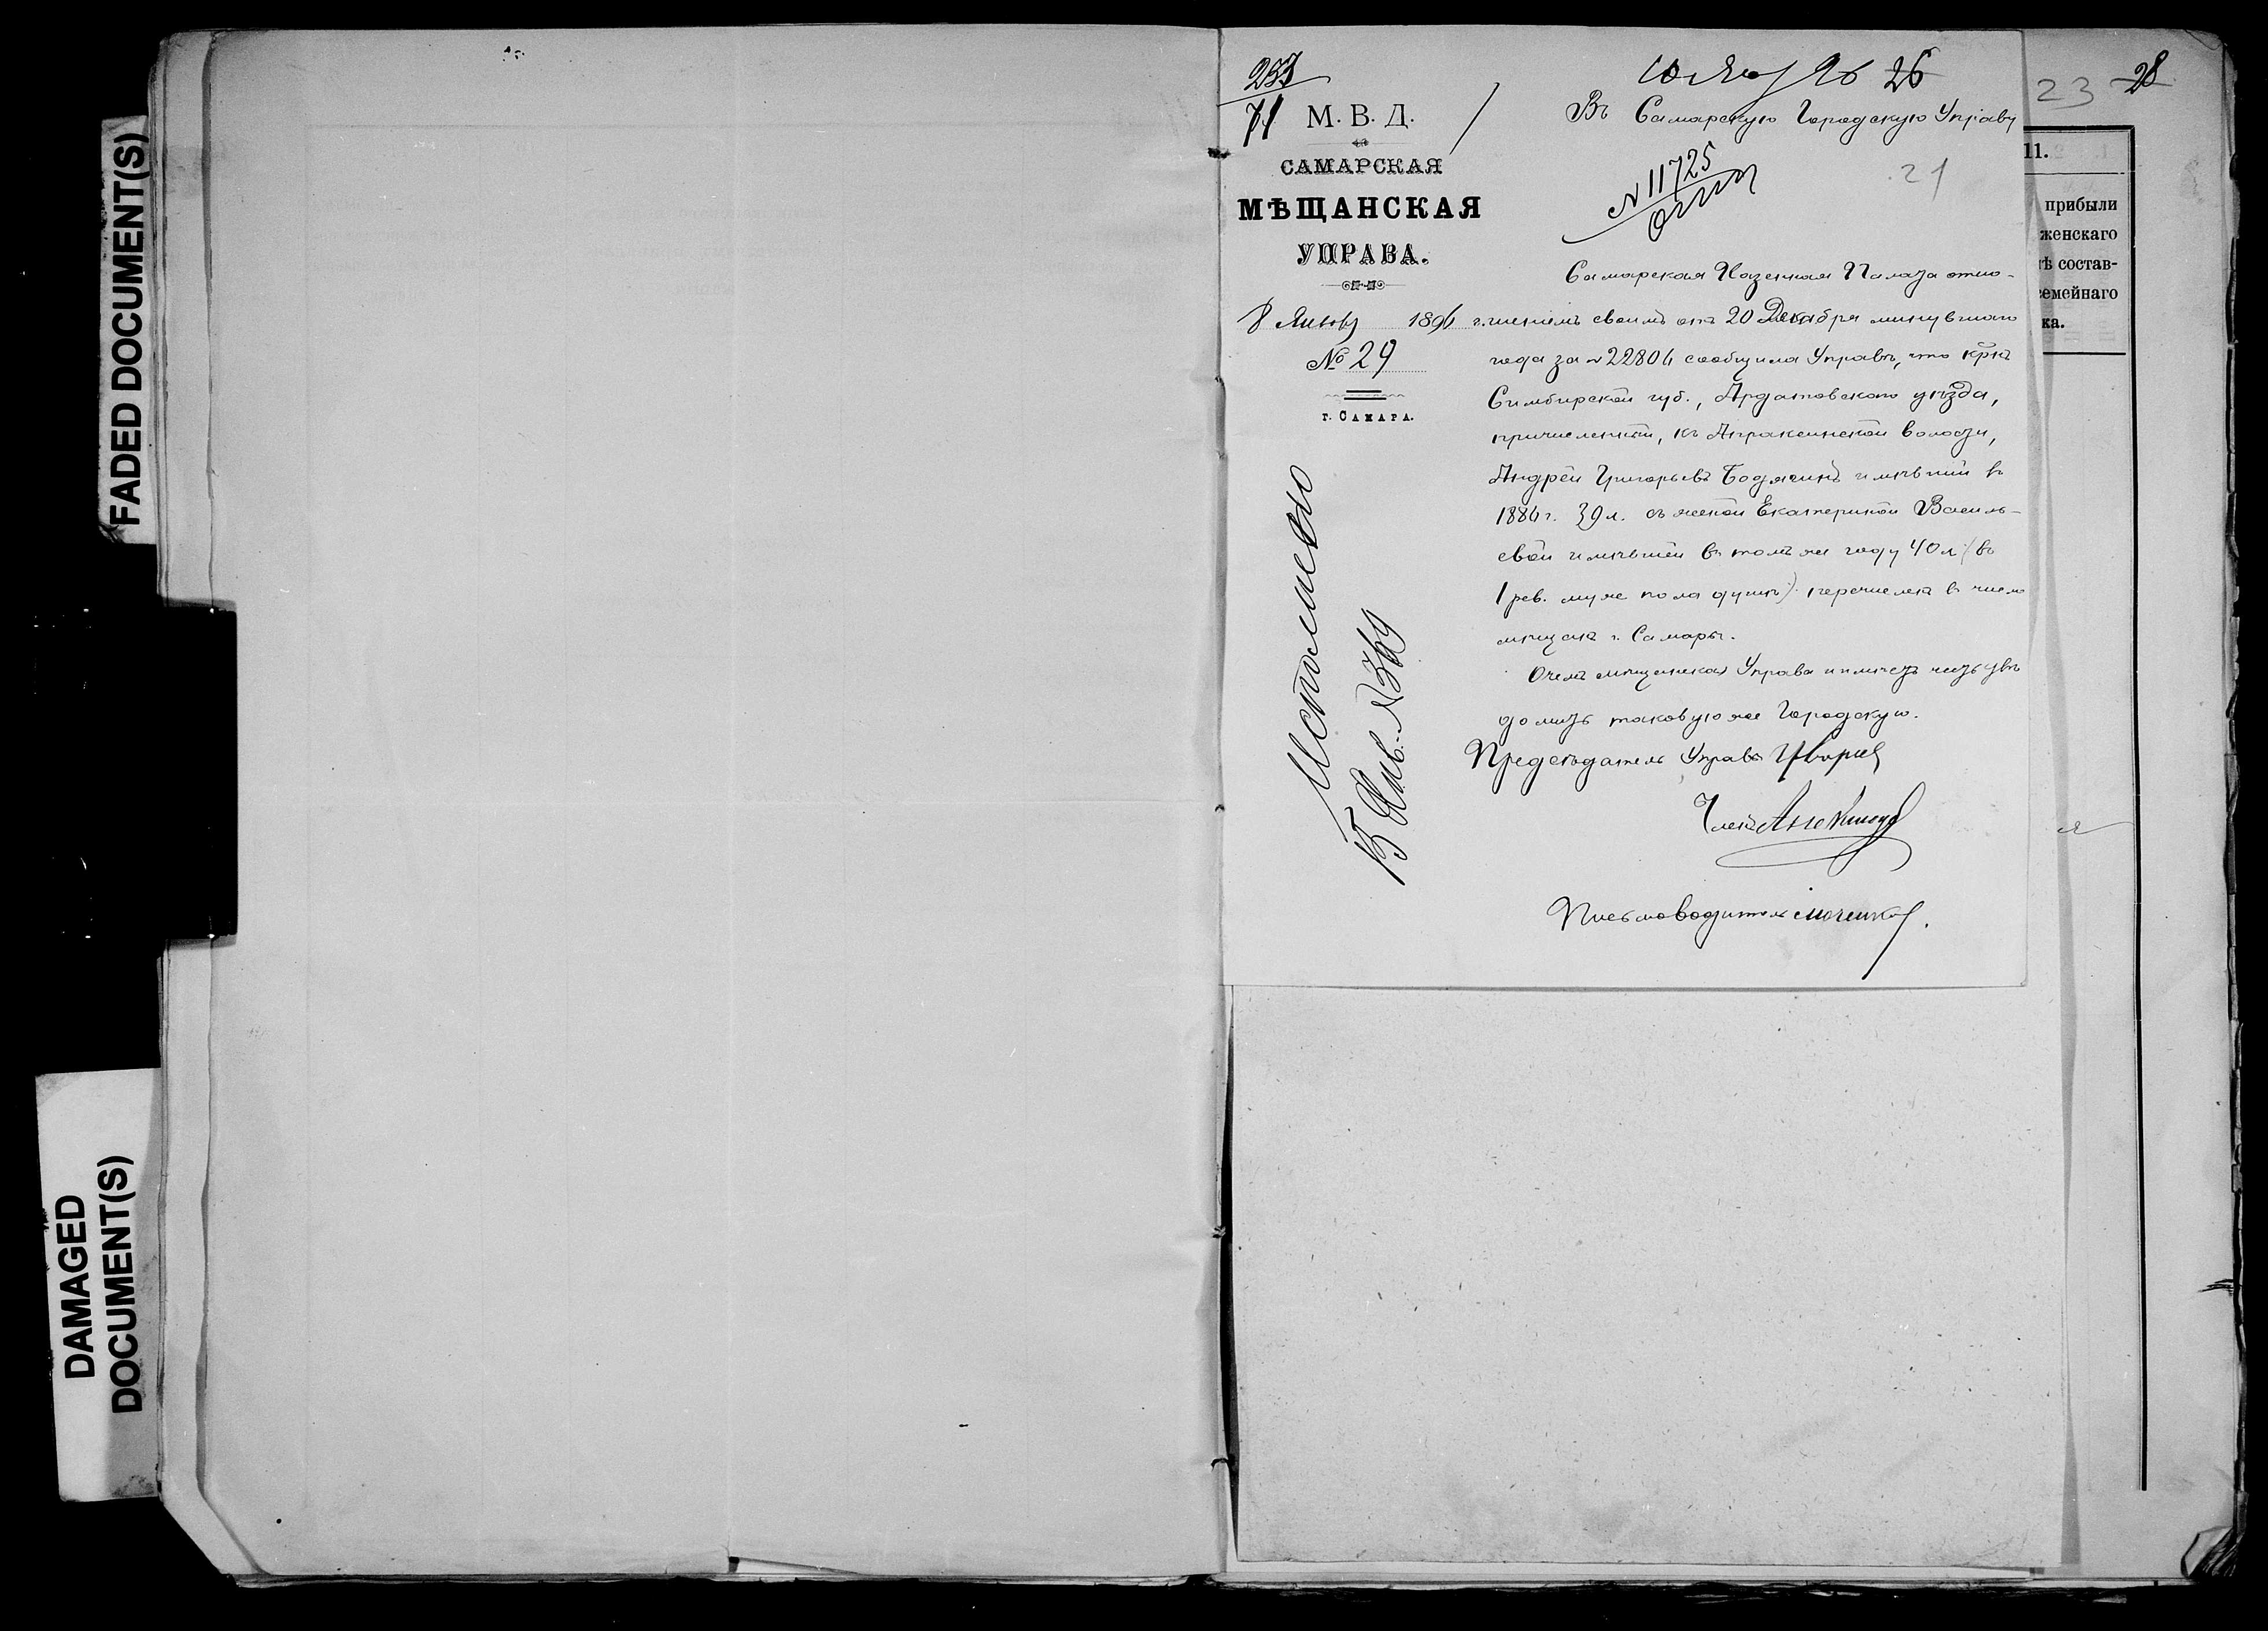 FADED DOCUMENT(S)
DAMAGED
DOCUMENT(S)
253
71
М. В. Д.
САМАРСКАЯ
МѢЩАНСКАЯ
УПРАВА.
8 Январ 1896 г.
№ 29
г. САМАРА.
Исполнено
15 Янв. № 369
10 Янв 96 26
Въ Самарскую Городскую Управу
21
№ 11725
Самарская Казенная Палата отно-
шеніемъ своимъ отъ 20 Декабря минувшаго
года за № 22804 сообщила Управѣ, что крнъ
Симбирской губ., Ардатовскаго уѣзда,
причисленный, къ Апраксинской волости,
Андрей Григорьевъ Бодякинъ имѣвшій въ
1884 г. 39 л. съ женой Екатериной Василь-
евой имѣвшей въ томъ же году 40 л (въ
1 рев. муж пола душѣ) перечисленъ в число
мѣщанъ г. Самары.
О чемъ мѣщанская Управа имѣетъ честь увѣ
домить таковую же Городскую.
Предсѣдатель Управы
Членъ
Письмоводитель
23 28
11.
прибыли
женскаго
тѣ состав-
семейнаго
ка.